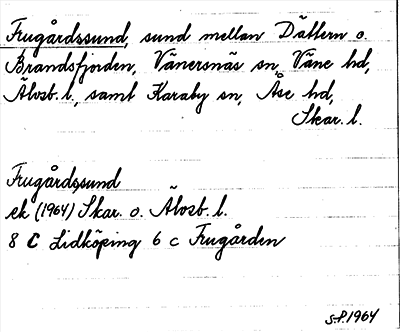 Frugårdssund, sund mellan Dättern o.
Brandsfjorden, Vänersnäs sn, Väne hd,
Älvsb. l., samt Karaby sn, Åse hd,
Skar. l.
Frugårdssund
ek (1964) Skar. o. Älvsb. l.
8 C Lidköping 6 c Frugården
S.P. 1964